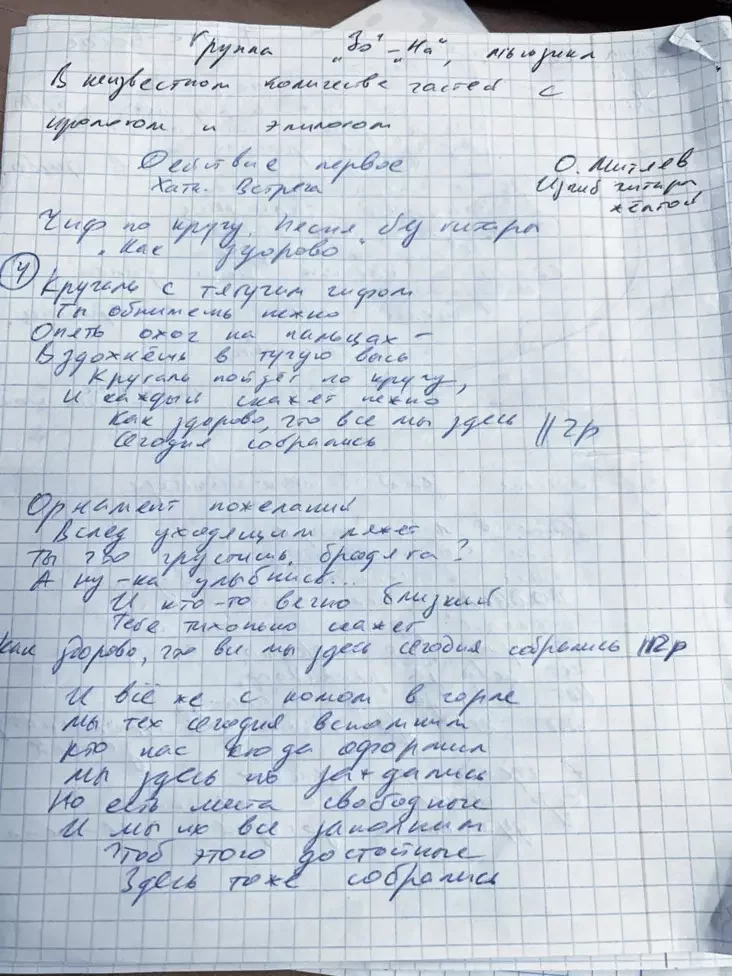 Группа „Зо" – „На", мьюзикл
В неизвестном количестве частей с
прологом и эпилогом
Действие первое
О. Митяев
Хата. Встреча
Изгиб гитары
жёлтой
Чиф по кругу. Песня без гитары
„Как здорово"
Кругаль с тягучим чифом
Ты обнимешь нежно
Опять ожог на пальцах –
Вздохнёшь в тугую высь
Кругаль пойдёт по кругу,
И каждый скажет нежно
Как здорово, что все мы здесь
Сегодня собрались ||2р
Орнамент пожеланий
Вслед уходящим ляжет
Ты что грустишь, бродяга?
А ну-ка улыбнись...
И кто-то вечно близкий
Тебе тихонько скажет
Как здорово, что все мы здесь сегодня собрались ||2р
И всё же с комом в горле
Мы тех сегодня вспомним
Кто нас сюда оформил
Мы здесь их заждались
Но есть места свободные
И мы их все заполним
Чтоб этого достойные
Здесь тоже собрались